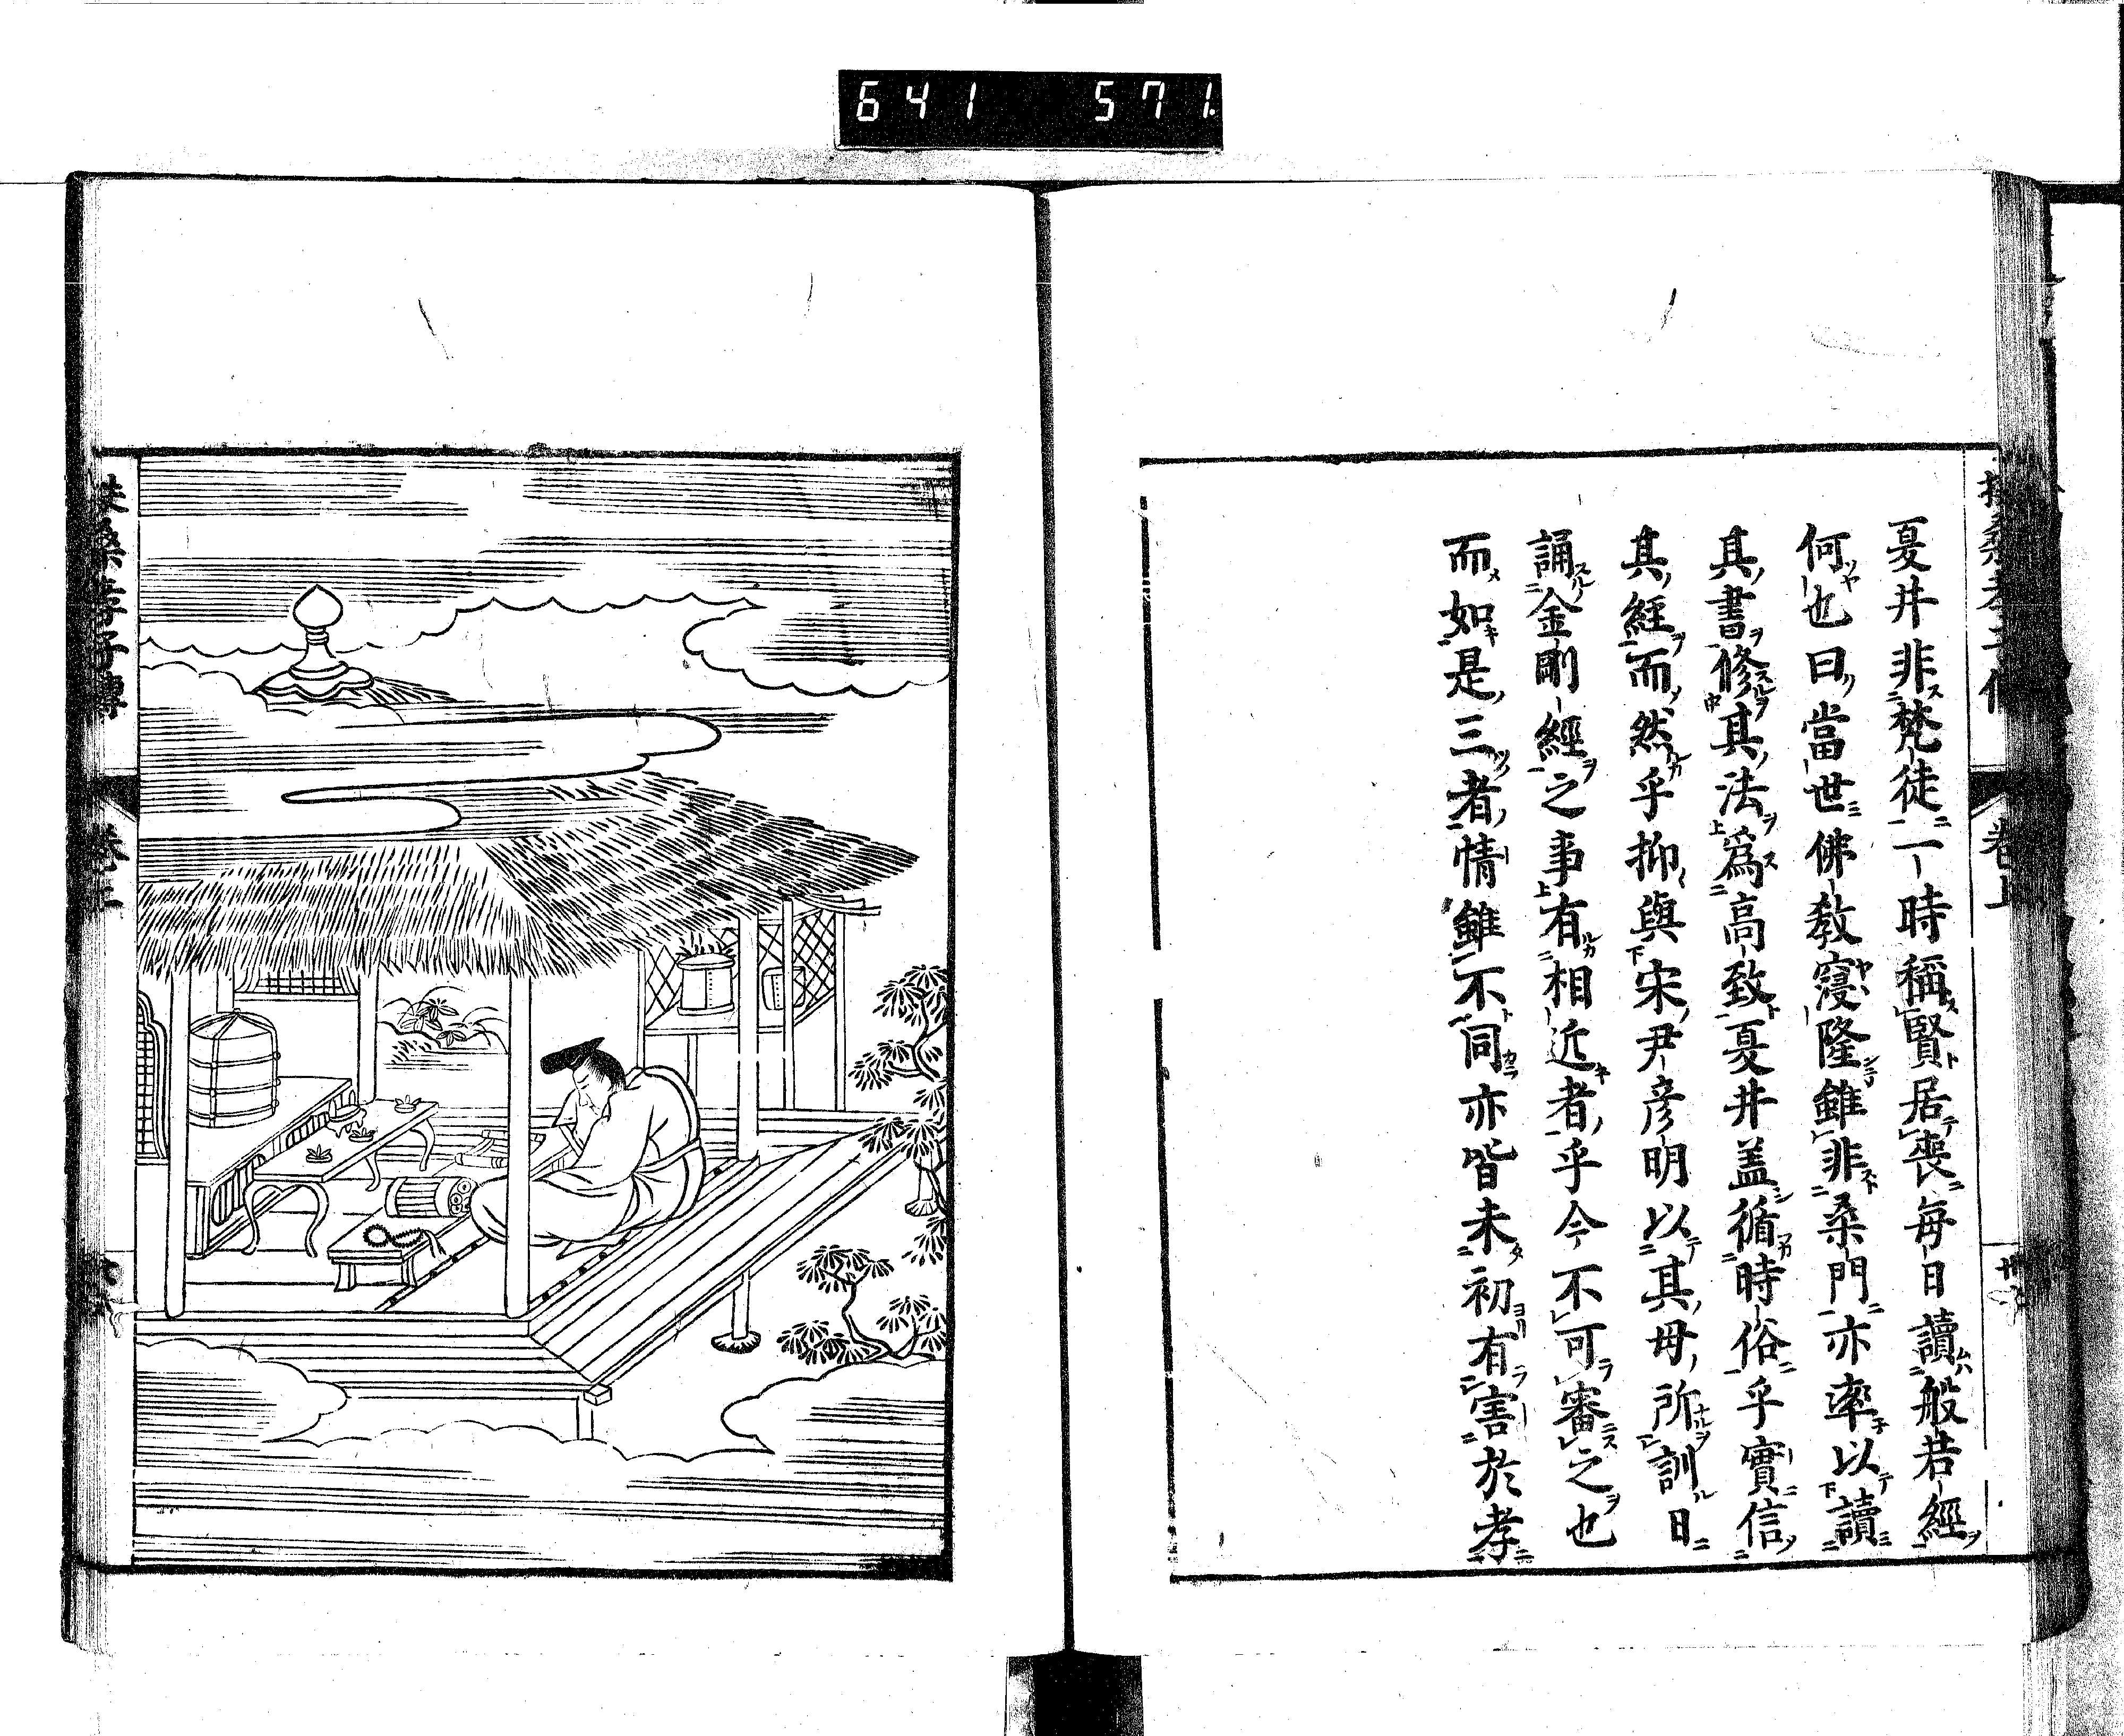 641 571.
扶桑孝子傳 卷上
夏井非梵徒一時稱賢居喪每日讀般若經
何也曰當世佛教寖隆雖非桑門亦率以讀
其書修其法爲高致夏井盖循時俗乎實信
其經而然乎抑與宋尹彦明以其母所訓日
誦金剛經之事有相近者乎今不可審之也
而如是三者情雖不同亦皆未初有害於孝
扶桑孝子傳 卷上